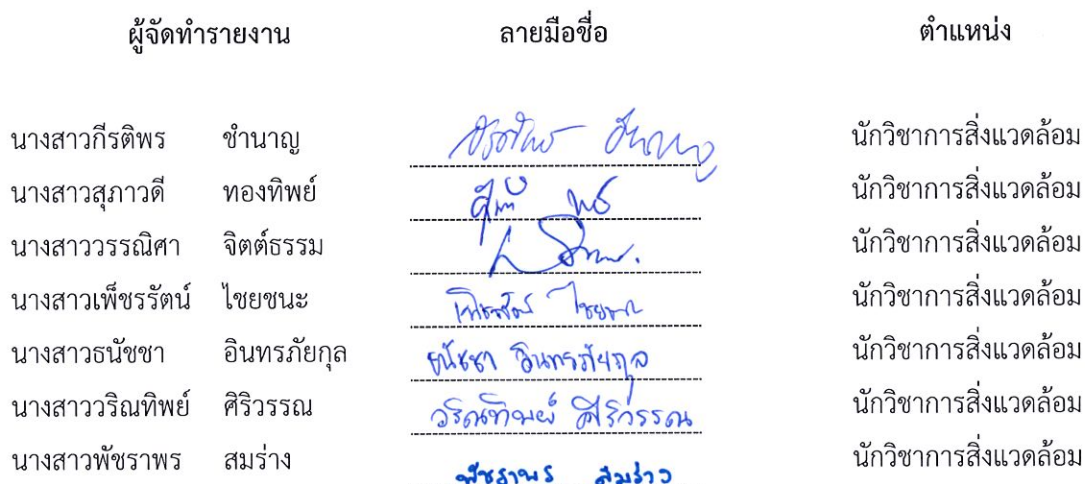 ผู้จัดทำรายงาน ลายมือชื่อ ตำแหน่ง
นางสาวกีรติพร ชำนาญ นักวิชาการสิ่งแวดล้อม
นางสาวสุภาวดี ทองทิพย์ นักวิชาการสิ่งแวดล้อม
นางสาววรรณิศา จิตต์ธรรม นักวิชาการสิ่งแวดล้อม
นางสาวเพ็ชรรัตน์ ไชยชนะ นักวิชาการสิ่งแวดล้อม
นางสาวธนัชชา อินทรภัยกุล ธนัชชา อินทรภัยกุล นักวิชาการสิ่งแวดล้อม
นางสาววริณทิพย์ ศิริวรรณ วริณทิพย์ ศิริวรรณ นักวิชาการสิ่งแวดล้อม
นางสาวพัชราพร สมร่าง พัชราพร สมร่าง นักวิชาการสิ่งแวดล้อม